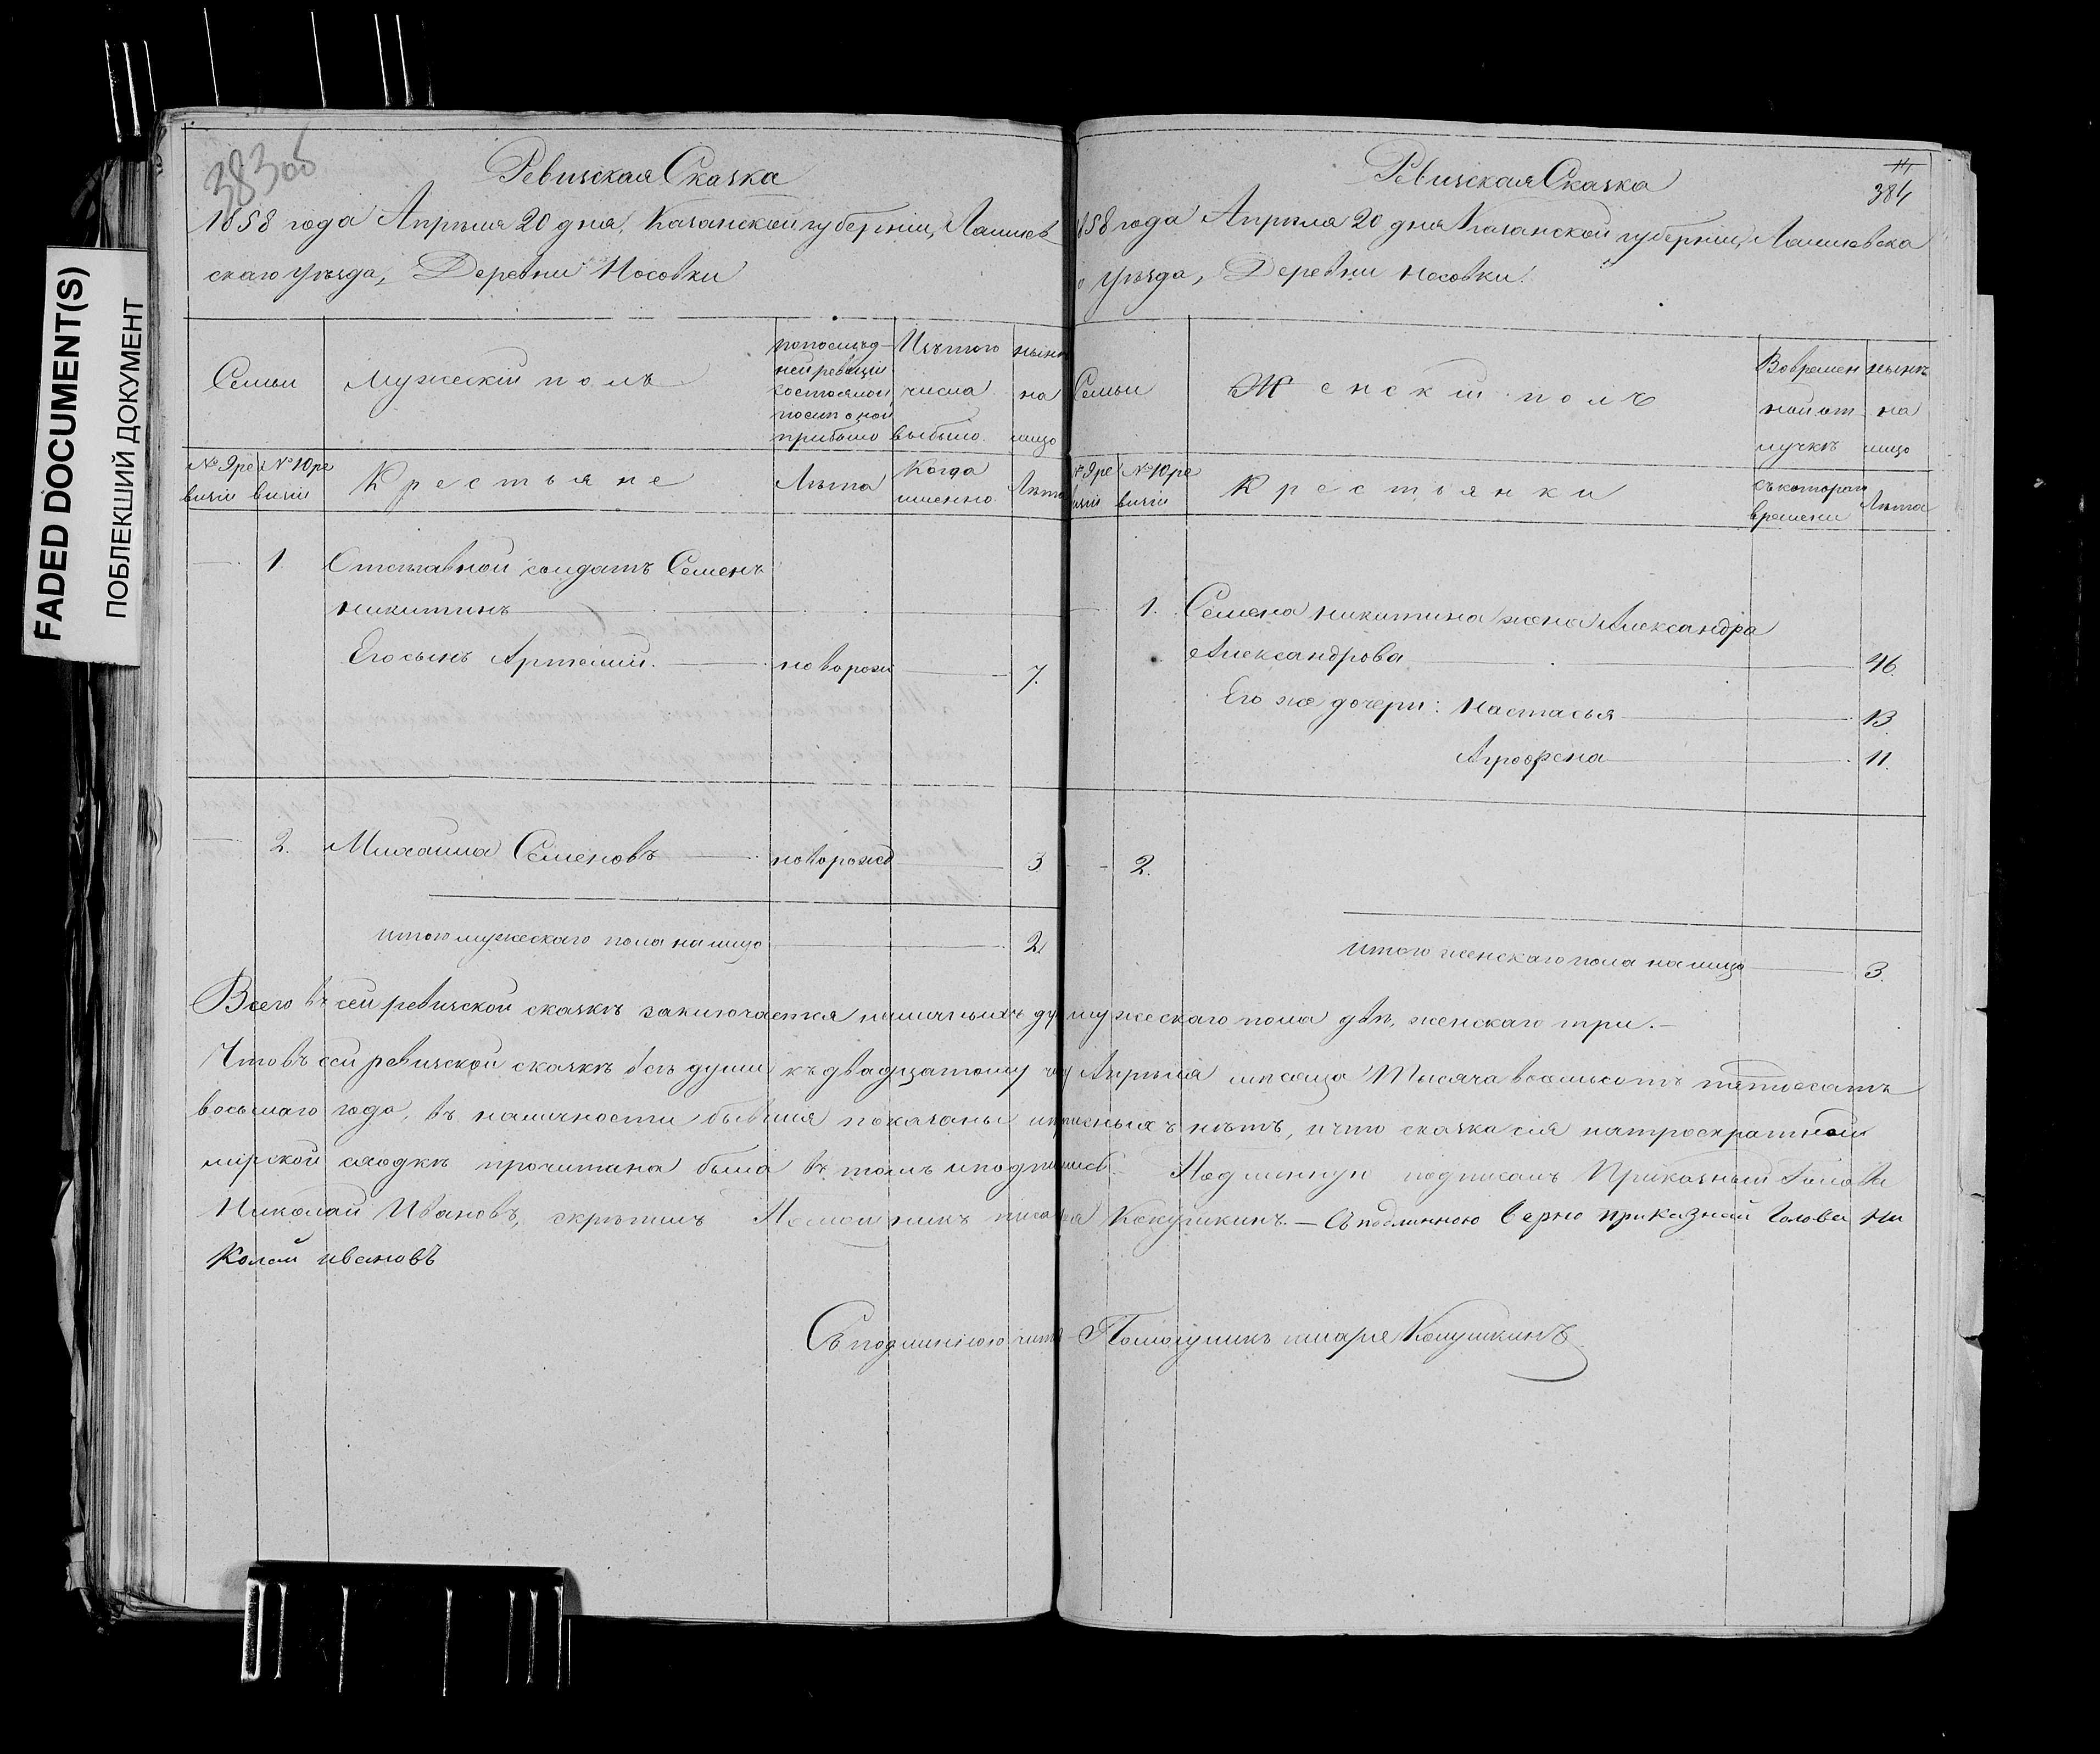 FADED DOCUMENT(S)
ПОБЛЕКШИЙ ДОКУМЕНТ
383об
Ревизская Сказка
1858 года Апрѣля 20 дня, Казанской губерніи, Лаишев
скаго уѣзда, Деревни Носовки
Семьи
Мужескій полъ
по послѣд
ней ревизіи
состояло и
после оной
прибыло
Изъ того
числа
выбыло.
нынѣ
на
лицо
№ 9 ре
визіи
№ 10 ре
визіи
Крестьяне
Лѣта
Когда
именно
Лѣта
1. Отставной солдатъ Семенъ
Никитинъ
Его сынъ Артемій. новорожд 7.
2. Михаила Семеновъ новорожд 3
итого мужескаго пола на лицо 2
11
384
Ревизская Сказка
1858 года Апрѣля 20 дня Казанской губерніи, Лаишевска
го уѣзда, Деревни Носовки.
Семьи
Женский полъ
Во времен
ной от
лучкѣ
нынѣ
на
лицо
№ 9 ре
визіи
№ 10 ре
визіи
Крестьянки
Съ котораго
времени
Лѣта
1. Семена Никитина жена Александра
Александрова 46.
Его же дочери: Настасья 13.
Агрофена 11.
2.
итого женскаго пола на лицо 3.
Всего въ сей ревизской сказкѣ заключается наличныхъ душ мужескаго пола двѣ, женскаго три.
Что въ сей ревизской сказкѣ всѣ души къ двадцатому чи Апрѣля мѣсяца Тысяча восемьсотъ пятдесятъ
восьмаго года, въ наличности бывшія показаны и прописныхъ нѣтъ, и что сказка сія на троекратной
мірской сходкѣ прочитана была въ томъ и подпишись. Подлинную подписалъ Приказный Голова
Николай Ивановъ, скрѣпилъ Помощникъ писаря Кокушкинъ. — Съ подлинною верно приказной Голова Ни
колай ивановъ
Съ подлинною читалъ Помощникъ писаря Кокушкинъ